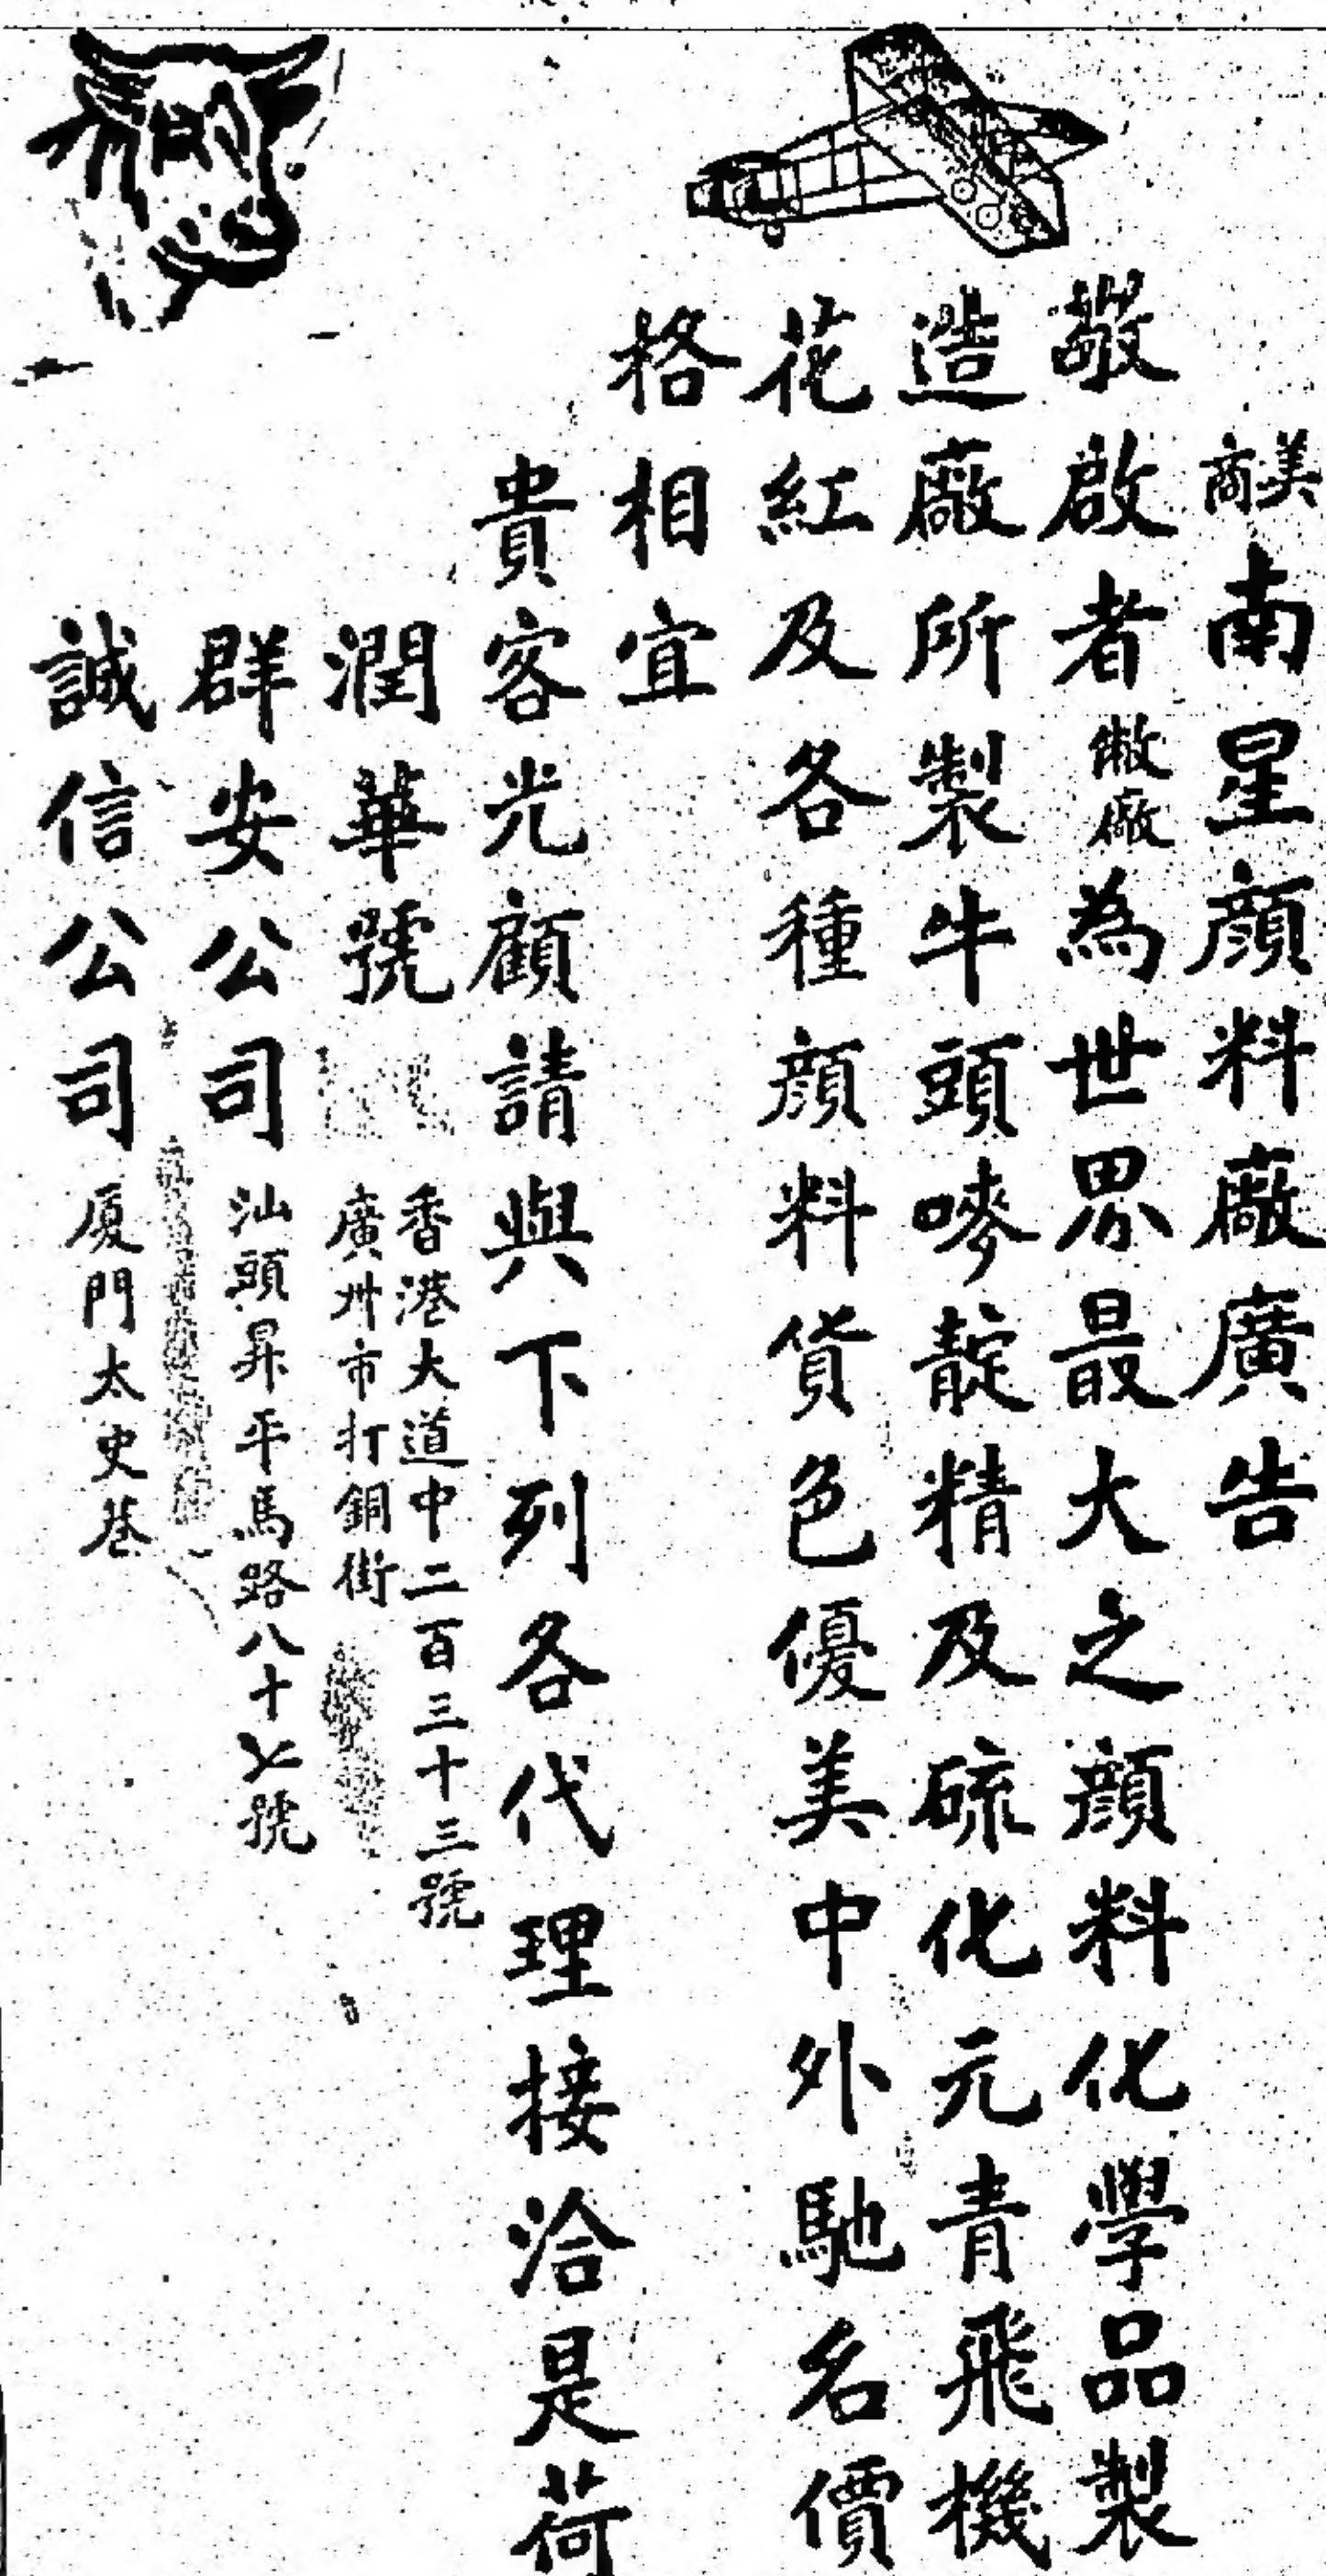 美商南星顏料廠廣告
敬啟者敝廠為世界最大之顏料化學品製
造廠所製牛頭嘜靛精及硫化元青飛機
花紅及各種顏料貨色優美中外馳名價
格相宜
貴客光顧請與下列各代理接洽是荷
潤華號
香港大道中二百三十三號
廣州市打銅街
群安公司
汕頭昇平馬路八十七號
誠信公司
厦門太史巷